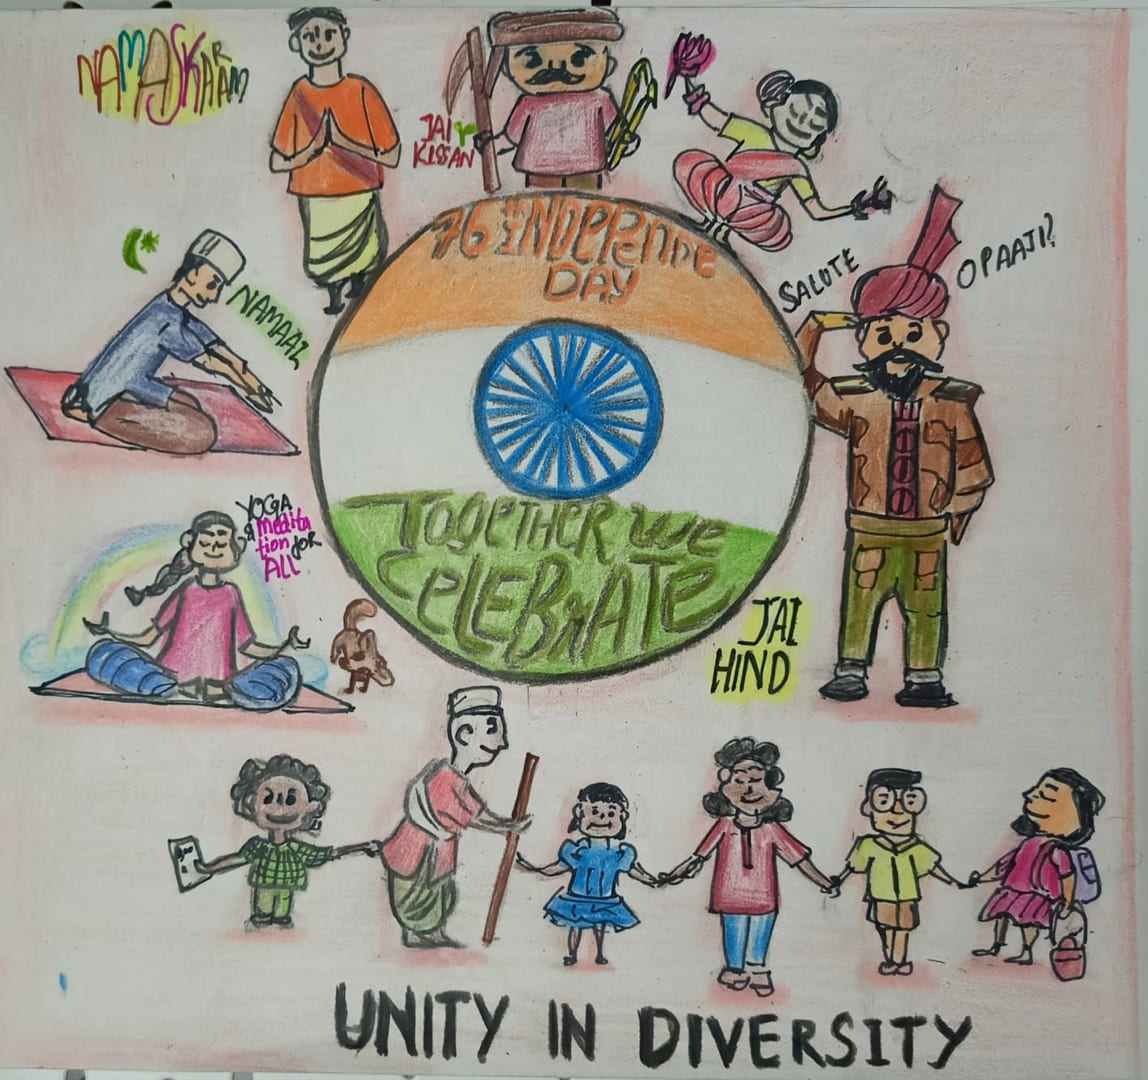 NAMASKARAM
JAI
KISSAN
76 INDEPENDE
DAY
SALUTE
O PAAJI?
NAMAAZ
YOGA
& medita
tion for
ALL
TOGETHER WE
CELEBRATE
JAI
HIND
UNITY IN DIVERSITY